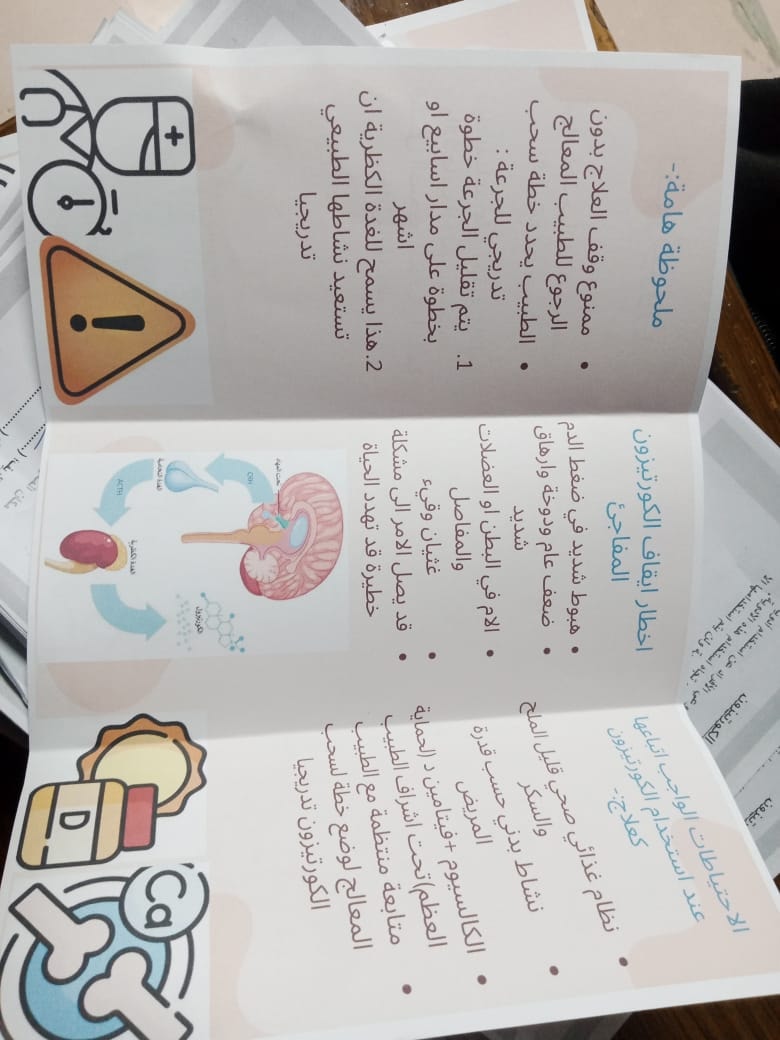 الاحتياطات الواجب اتباعها
عند استخدام الكورتيزون
كعلاج:-
نظام غذائي صحي قليل الملح
والسكر
نشاط بدني حسب قدرة
المريض
الكالسيوم +فيتامين د (لحماية
العظم) تحت اشراف الطبيب
متابعة منتظمة مع الطبيب
المعالج لوضع خطة لسحب
الكورتيزون تدريجيا
D
Ca
اخطار ايقاف الكورتيزون
المفاجئ
هبوط شديد في ضغط الدم
ضعف عام ودوخة وارهاق
شديد
الام في البطن او العضلات
والمفاصل
غثيان وقيء
قد يصل الامر الى مشكلة
خطيرة قد تهدد الحياة
تحت المهاد
CRH
الغدة النخامية
ACTH
الغدة الكظرية
الكورتيزول
ملحوظة هامة:-
ممنوع وقف العلاج بدون
الرجوع للطبيب المعالج
الطبيب يحدد خطة سحب
تدريجي للجرعة :
1. يتم تقليل الجرعة خطوة
بخطوة على مدار اسابيع او
اشهر
2. هذا يسمح للغدة الكظرية ان
تستعيد نشاطها الطبيعي
تدريجيا
الكورتيزون